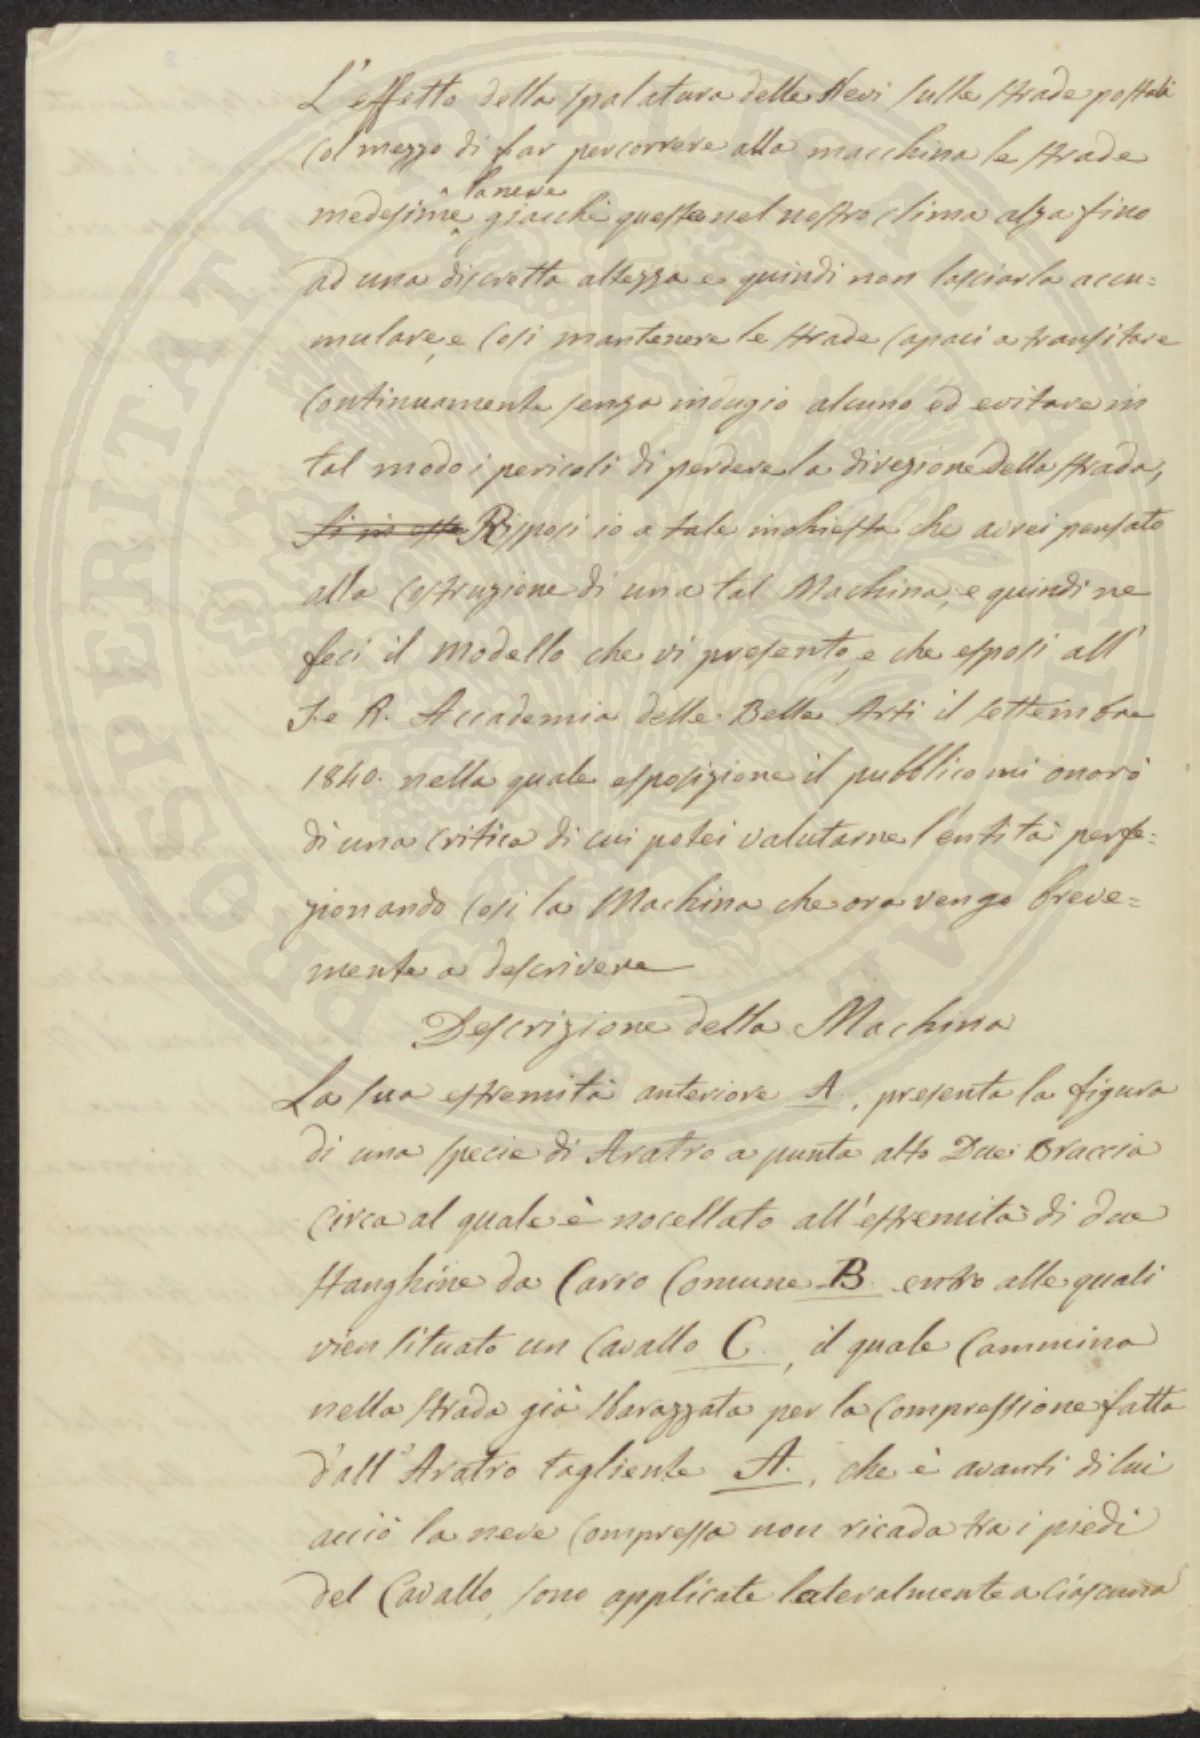 L'effetto della spalatura delle Nevi sulle strade postali
col mezzo di far percorrere alla macchina le strade
la neve
medesime giacchè questa nel nostro clima alza fino
ad una discretta altezza e quindi non lasciarla accu=
mulare, e così mantenere le strade capaci a transitare
continuamente senza indugio alcuno ed evitare in
tal modo i pericoli di perdere la direzione della strada,
Risposi io a tale inchiesta che avrei pensato
alla costruzione di una tal Machina, e quindi ne
feci il modello che vi presento, e che esposi all'
I. e R. Accademia delle Belle Arti il settembre
1840. nella quale esposizione il pubblico mi onorò
di una critica di cui potei valutarne l'entità perfe=
zionando così la Machina che ora vengo breve=
mente a descrivere
Descrizione della Machina
La sua estremità anteriore A., presenta la figura
di una specie di Aratro a punta alto Due Braccia
circa al quale è nocellato all'estremità di due
stanghine da Carro Comune B. entro alle quali
vien situato un Cavallo C., il quale Cammina
nella strada già sbarazzata per la compressione fatta
d'all'Aratro tagliente A., che è avanti di lui
acciò la neve compressa non ricada tra i piedi
del Cavallo, sono applicate lateralmente a ciascuna
PROSPERITATI PUBLICAE AUGENDAE